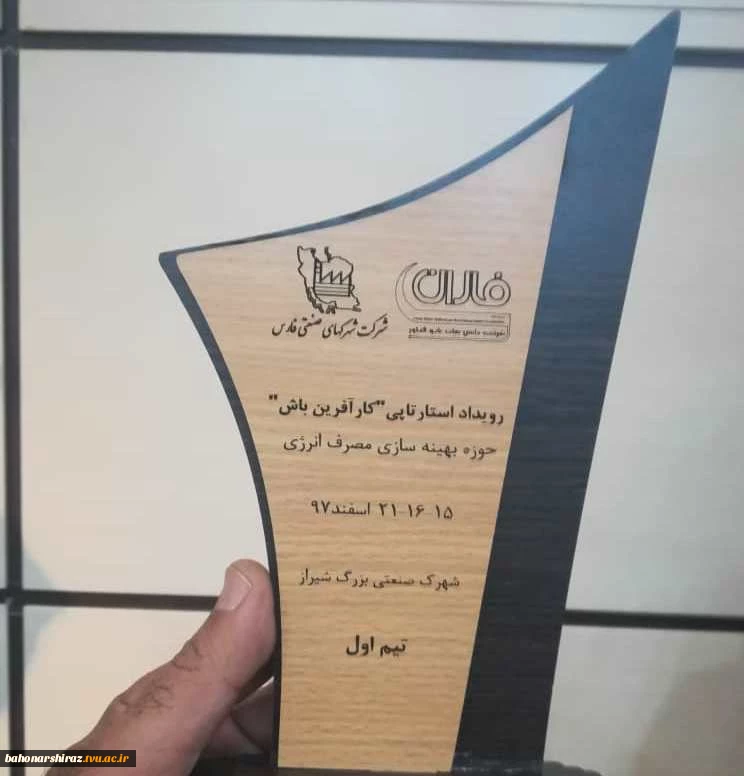 فاران
شرکت شهرکهای صنعتی فارس
رویداد استارتاپی "کارآفرین باش"
حوزه بهینه سازی مصرف انرژی
۱۵-۱۶-۲۱ اسفند۹۷
شهرک صنعتی بزرگ شیراز
تیم اول
bahonarshiraz.tvu.ac.ir